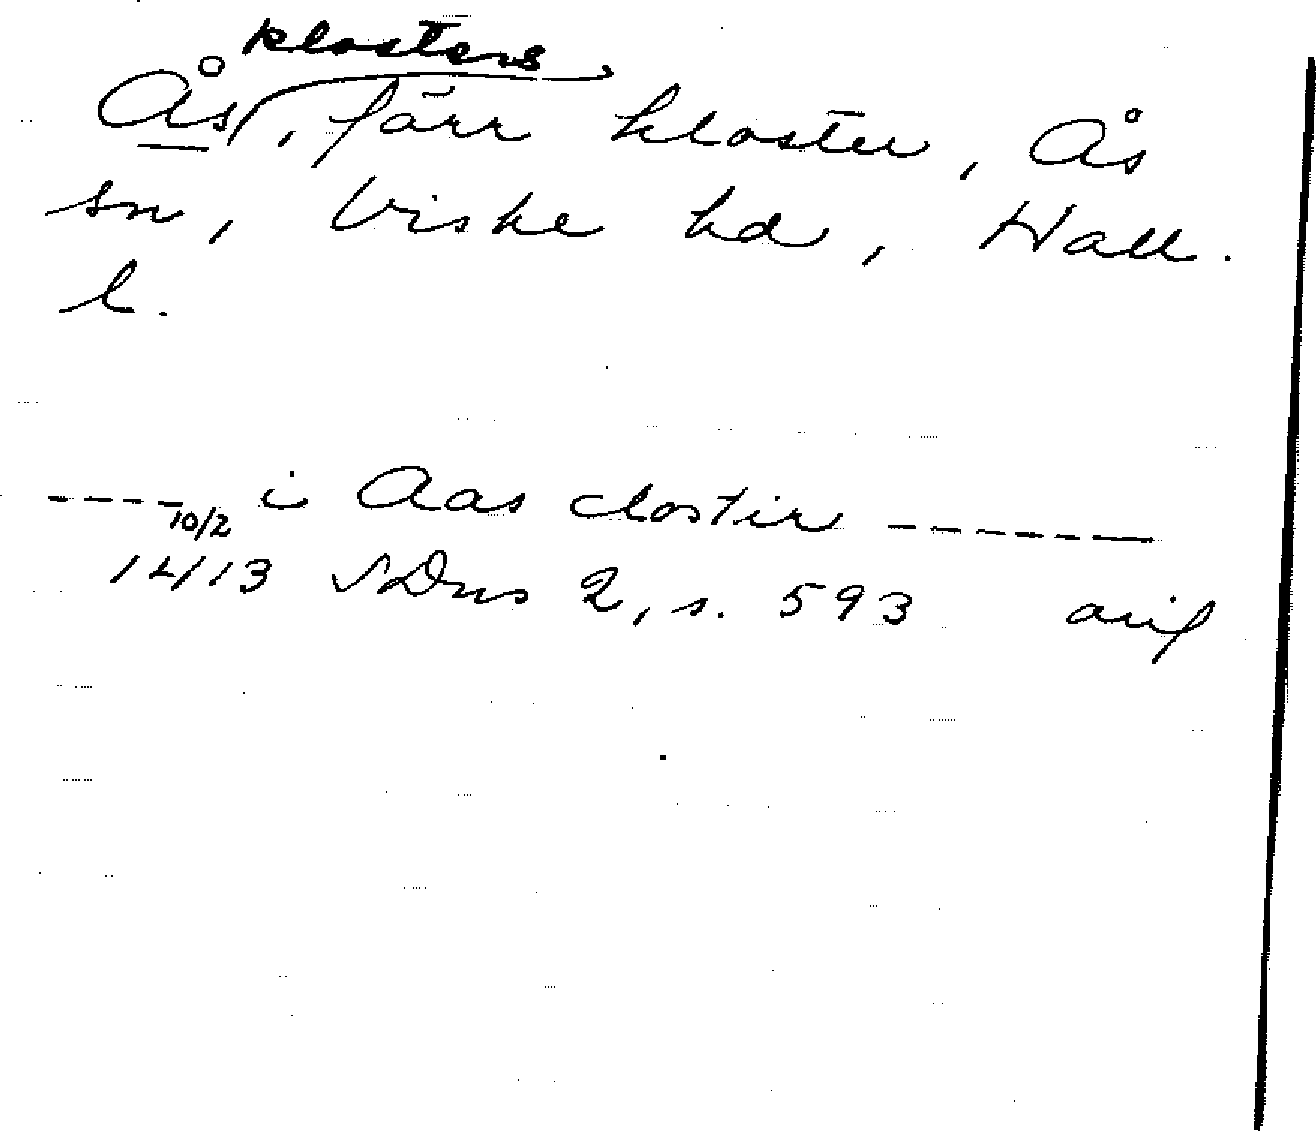 klosters
Ås, förr kloster, Ås
sn, Viske hd, Hall.
l.
----- i Aas clostir -------
10/2
1413 SDns 2, s. 593 avif